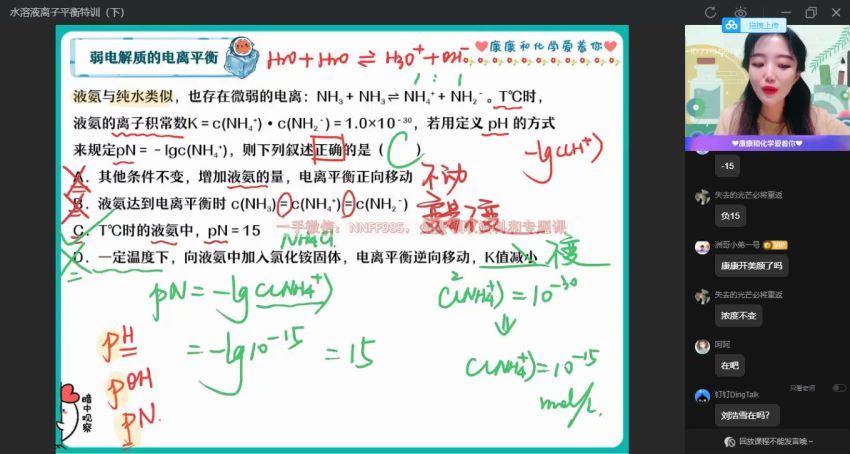 水溶液离子平衡特训（下）
拖拽上传
弱电解质的电离平衡
H₂O + H₂O ⇌ H₃O⁺ + OH⁻
康康和化学爱着你
1 : 1
液氨与纯水类似，也存在微弱的电离：NH₃ + NH₃ ⇌ NH₄⁺ + NH₂⁻。T℃时，
液氨的离子积常数K = c(NH₄⁺)·c(NH₂⁻) = 1.0×10⁻³⁰，若用定义 pH 的方式
来规定pN = －lgc(NH₄⁺)，则下列叙述正确的是（ C ）
-lgc(H⁺)
A．其他条件不变，增加液氨的量，电离平衡正向移动 不动
B．液氨达到电离平衡时 c(NH₃)=c(NH₄⁺)=c(NH₂⁻)
不变
C．T℃时的液氨中，pN = 15
一手微信：NNFF985，
科和专题课
NH₄Cl
D．一定温度下，向液氨中加入氯化铵固体，电离平衡逆向移动，K值减小 不变
pN = -lg c(NH₄⁺)
= -lg10⁻¹⁵ = 15
c²(NH₄⁺) = 10⁻³⁰
⇓
c(NH₄⁺) = 10⁻¹⁵
mol/L
pH
pOH
pN.
暗中观察
康康和化学爱着你
-15
失去的光芒必将重返
负15
洲哥小弟一号
康康开美颜了吗
失去的光芒必将重返
浓度不变
阿阿
在吧
只看老师
钉钉DingTalk
刘浩雪在吗？
回放课程不能发言噢~